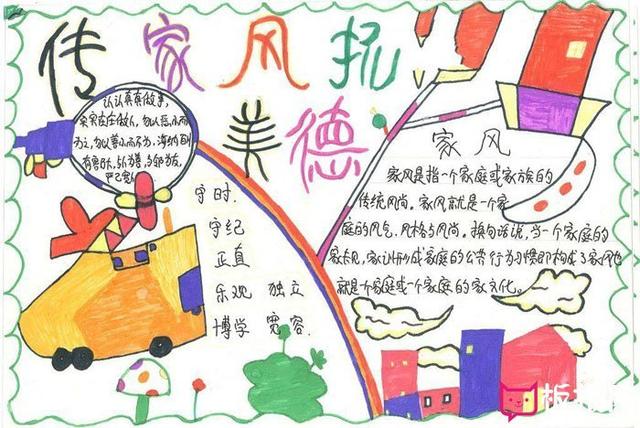 传家风抚
美德
认认真真做事,
实实在在做人,勿以恶小而
为之,勿以善小而不为,海纳百川
有容乃大,
严己宽人
守时.
守纪
正直
乐观 独立
博学 宽容.
家风
家风是指一个家庭或家族的
传统风尚。家风就是一个家
庭的风气,风格与风尚。换句话说,当一个家庭的
家长见,家认形成家庭的公共行为习惯即构成了家风也
就是个家庭或一个家庭的家文化。